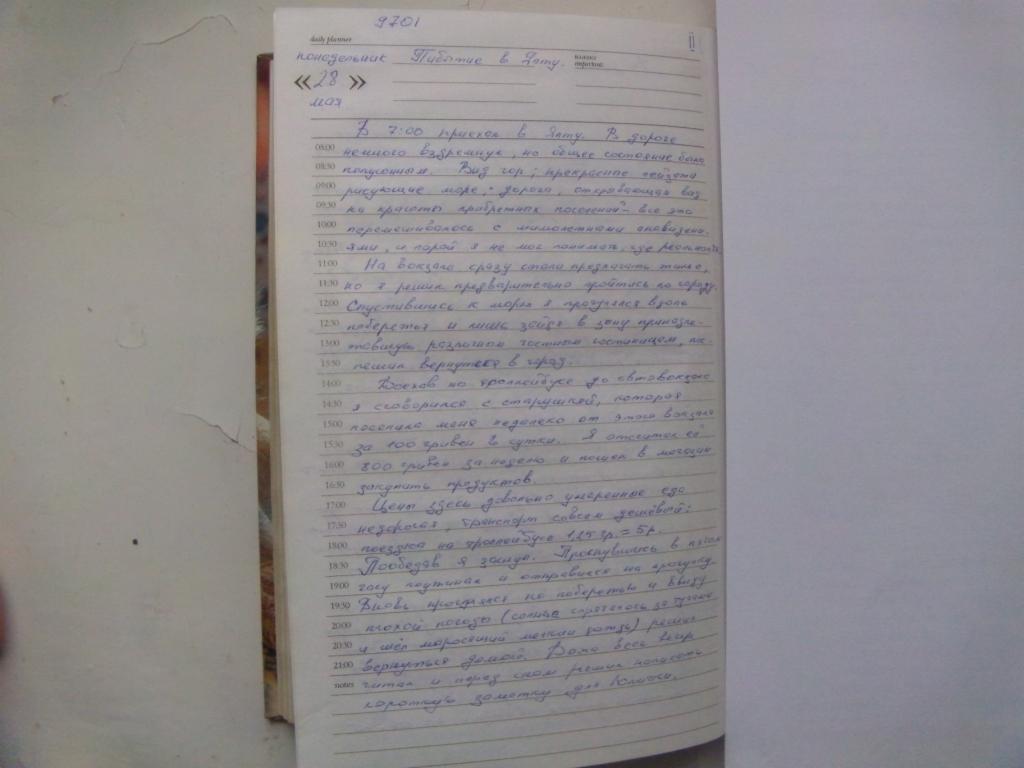 9701
daily planner
понедельник Пибытие в Ялту.
важно
« 28 »
мая
В 7:00 приехал в Ялту. В дороге
08:00 немного вздремнул, но общее состояние было
08:30 полусонным. Вид гор, прекрасные пейзажи
09:00 рисующие море, дорога, открывающая вид
09:30 на красоты прибрежных поселений – все это
10:00 перемешивалось с мимолетными сновидени-
10:30 ями, и порой я не мог понимать, где реальность.
11:00 На вокзале сразу стали предлагать жилье,
11:30 но я решил предварительно пройтись по городу.
12:00 Спустившись к морю я прогулялся вдоль
12:30 побережья и лишь зайдя в зону принадле-
13:00 жавшую различным гостиницам, по-
13:30 решил вернуться в город.
14:00 Доехав на троллейбусе до автовокзала
14:30 я сговорился с старушкой, которая
15:00 поселила меня недалеко от этого вокзала
15:30 за 100 гривен в сутки. Я отсчитал ей
16:00 800 гривен за неделю и пошел в магазин
16:30 закупить продуктов.
17:00 Цены здесь довольно умеренные еда
17:30 недорогая, транспорт совсем дешёвый:
18:00 поездка на троллейбусе 1,25 гр. = 5р.
18:30 Пообедав я заснул. Проснувшись в
19:00 часу поужинал и отправился на прогулку.
19:30 Вновь прогулялся по побережью и ввиду
20:00 плохой погоды (солнце спряталось за тучами
20:30 и шёл моросящий мелкий дождь) решил
21:00 вернуться домой. Дома весь вечер
notes читал и перед сном решил написать
короткую заметку для